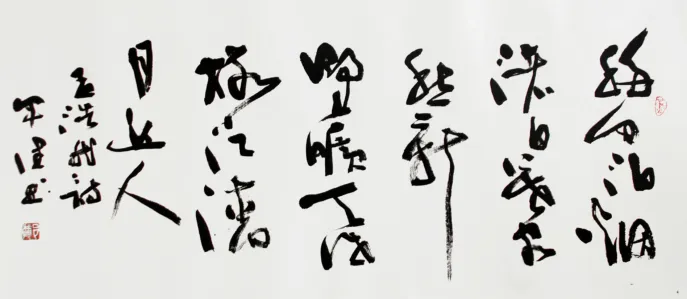 移舟泊烟
渚日暮客
愁新
野曠天低
樹江清
月近人
孟浩然詩